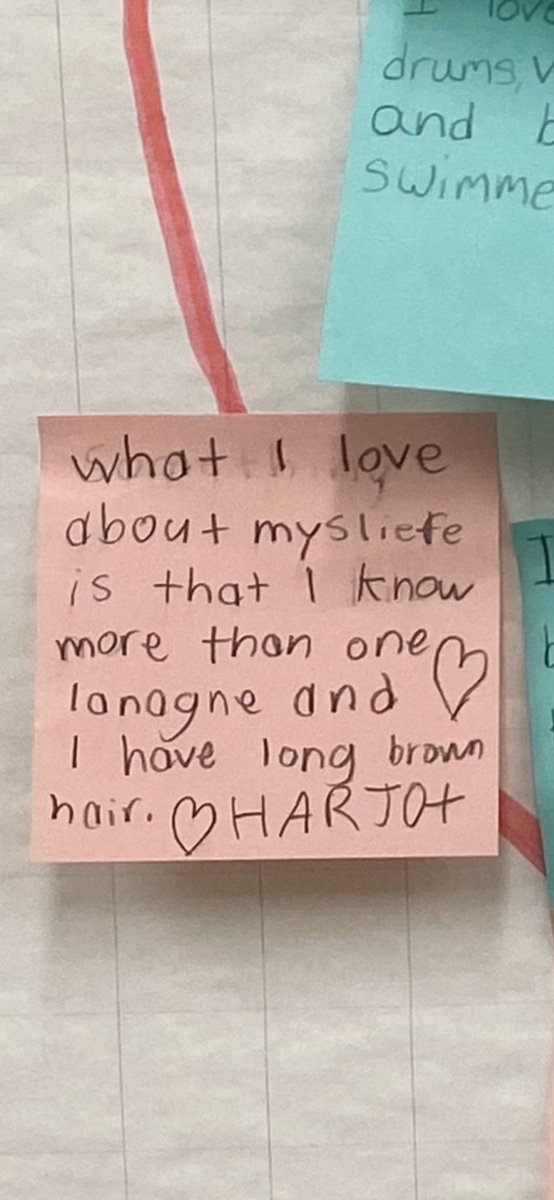 I love
drums,
and
swimme
what I love
about mysliefe
is that I know
more than one
lanagne and ♡
I have long brown
hair. ♡ HARJOt
I